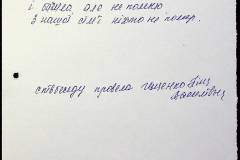 і била, але не помню
З нашої сім'ї ніхто не помер.
співбесіду провела Іщенко Ніна
Василівна